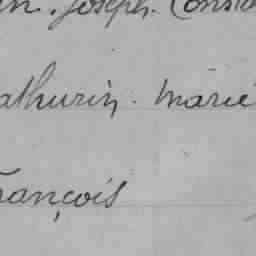 n. Joseph. Consta
athurin. Marie
rançois